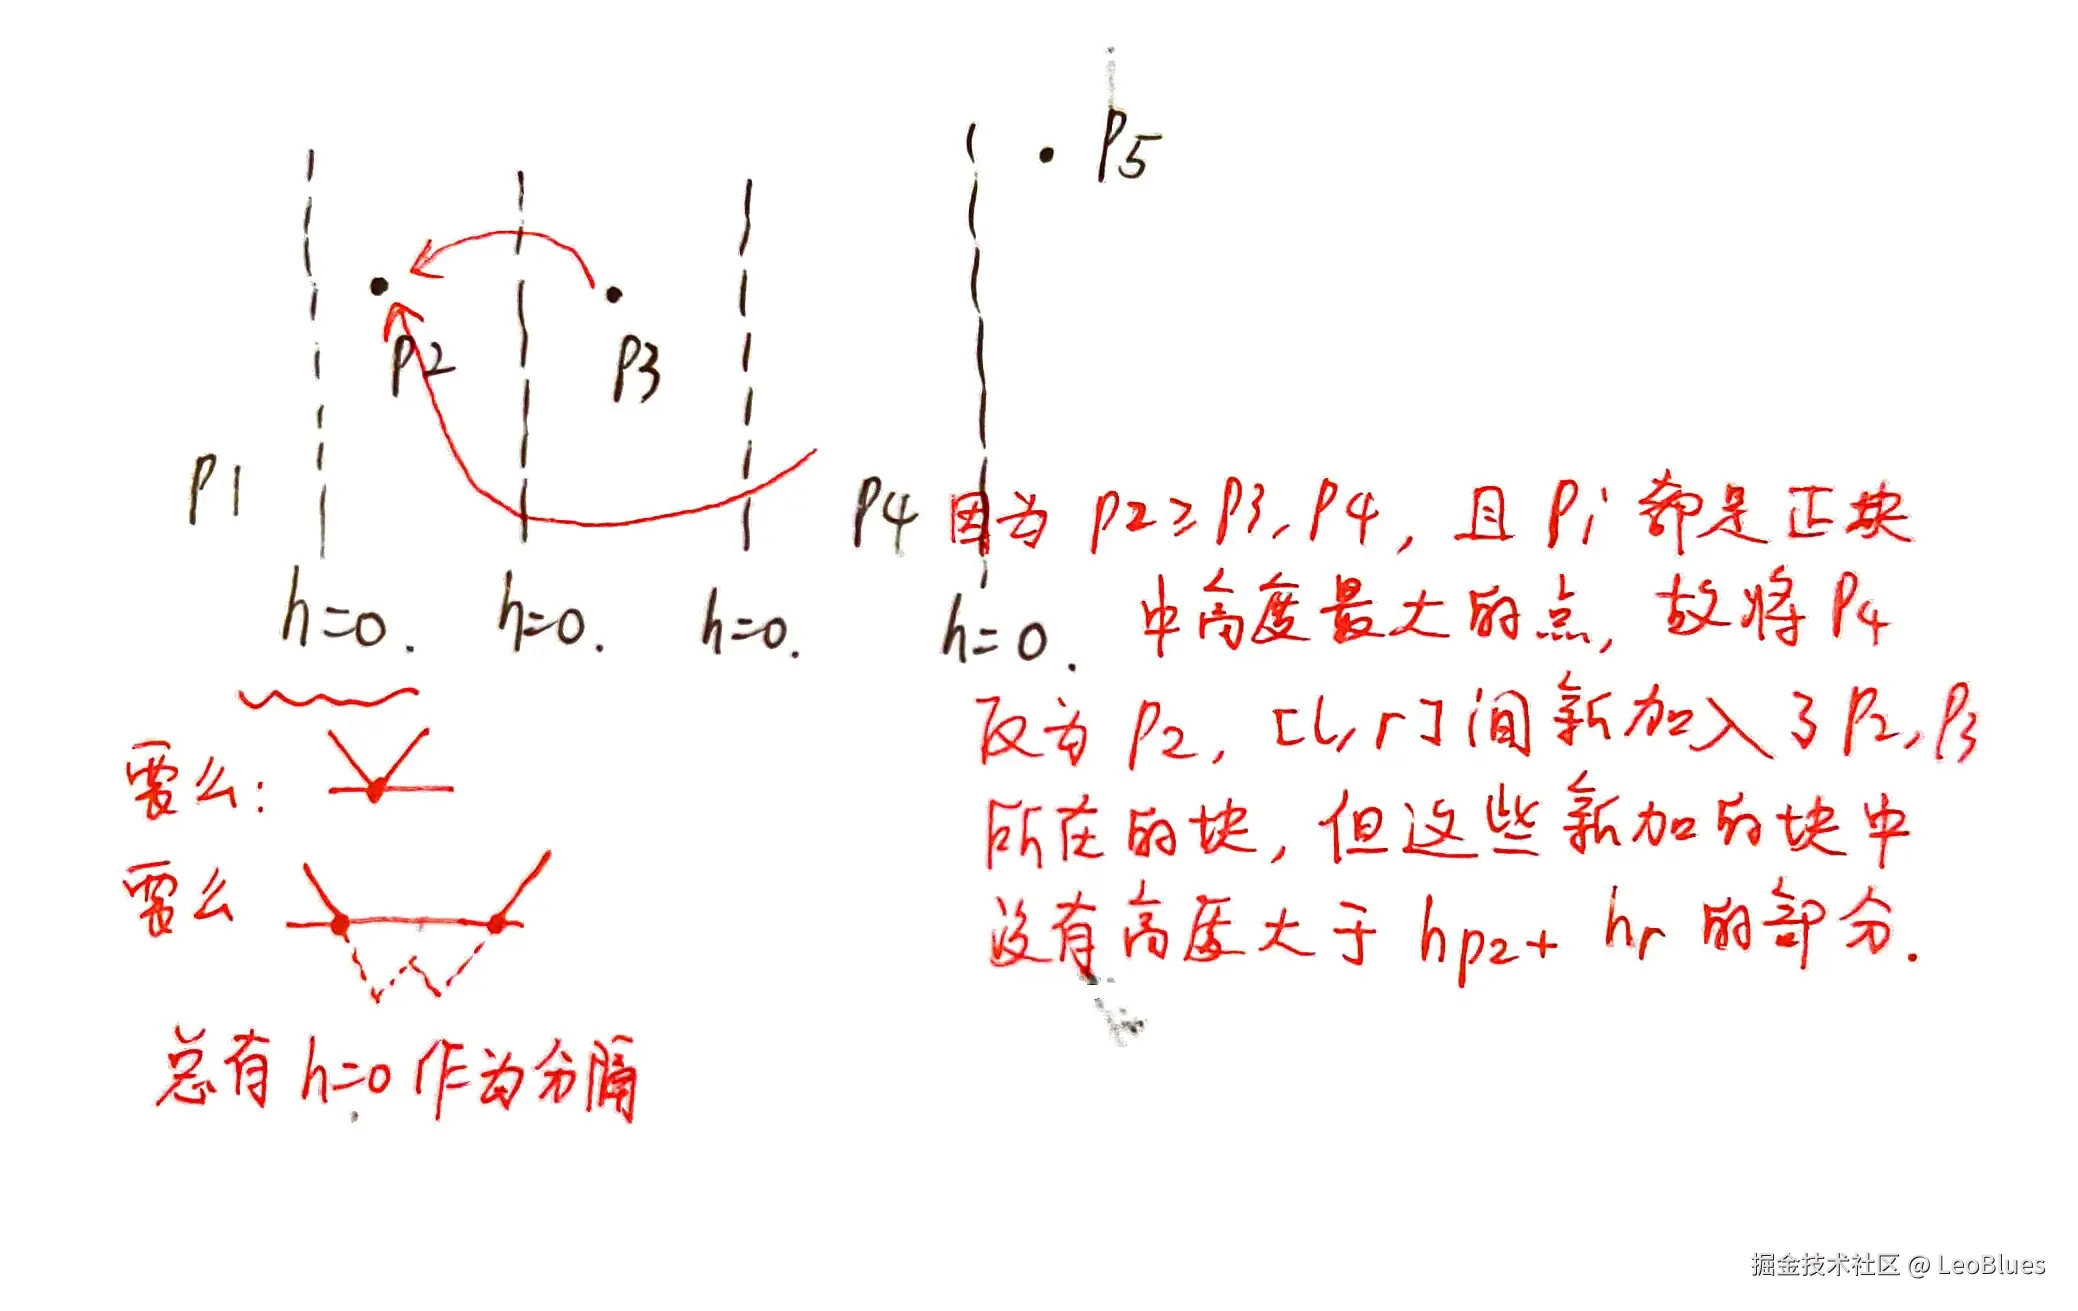 P5
P2
P3
P1
P4
h=0.
h=0.
h=0.
h=0.
因为 P2≥P3,P4, 且 Pi 都是正块
中高度最大的点, 故将 P4
反为 P2, [l,r]间新加入了P2,P3
所在的块, 但这些新加的块中
没有高度大于 hp2+ hr 的部分.
要么:
要么
总有 h=0 作为分隔
掘金技术社区 @ LeoBlues